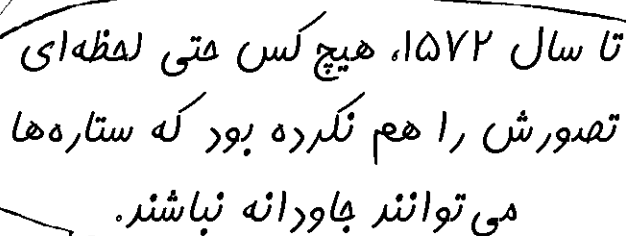 تا سال ۱۵۷۲، هیچ کس حتی لحظه‌ای
تصورش را هم نکرده بود که ستاره‌ها
می‌توانند جاودانه نباشند.